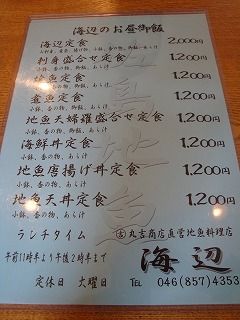 海辺のお昼御飯
海辺定食 2,000円
刺身盛合せ定食 1,200円
小鉢、香の物、御飯、あら汁
地魚定食 1,200円
小鉢、香の物、御飯、あら汁
煮魚定食 1,200円
小鉢、香の物、御飯、あら汁
地魚天婦羅盛合せ定食 1,200円
小鉢、香の物、御飯、あら汁
海鮮丼定食 1,200円
小鉢、香の物、あら汁
地魚唐揚げ丼定食 1,200円
小鉢、香の物、あら汁
地魚天丼定食 1,200円
小鉢、香の物、あら汁
ランチタイム
午前11時半より午後2時半まで
定休日 火曜日
丸吉商店直営地魚料理店
海辺
TEL 046(857)4353
地魚